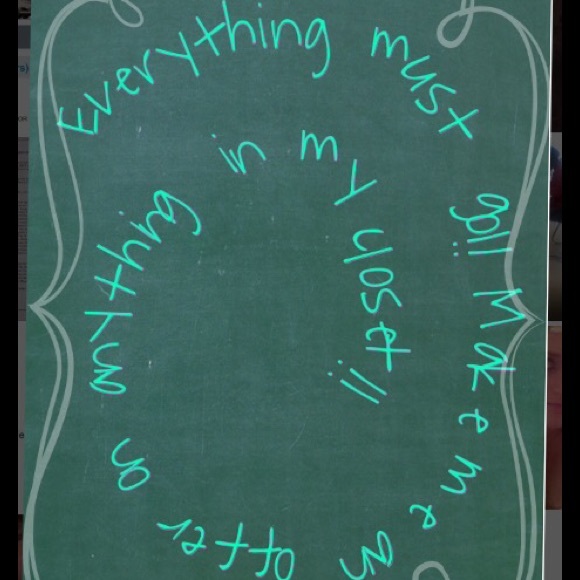 Everything must go!! Make me an offer on anything in my closet!!